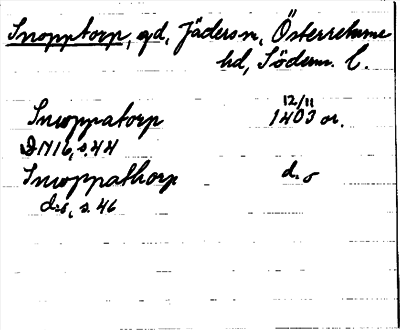 Snopptorp, gd, Jäders sn, Österrekarne
hd, Söderm. l.
Snoppatorp 12/11 1403 or.
DN16, s. 44
Snoppathorp d:o
d:o, s. 46